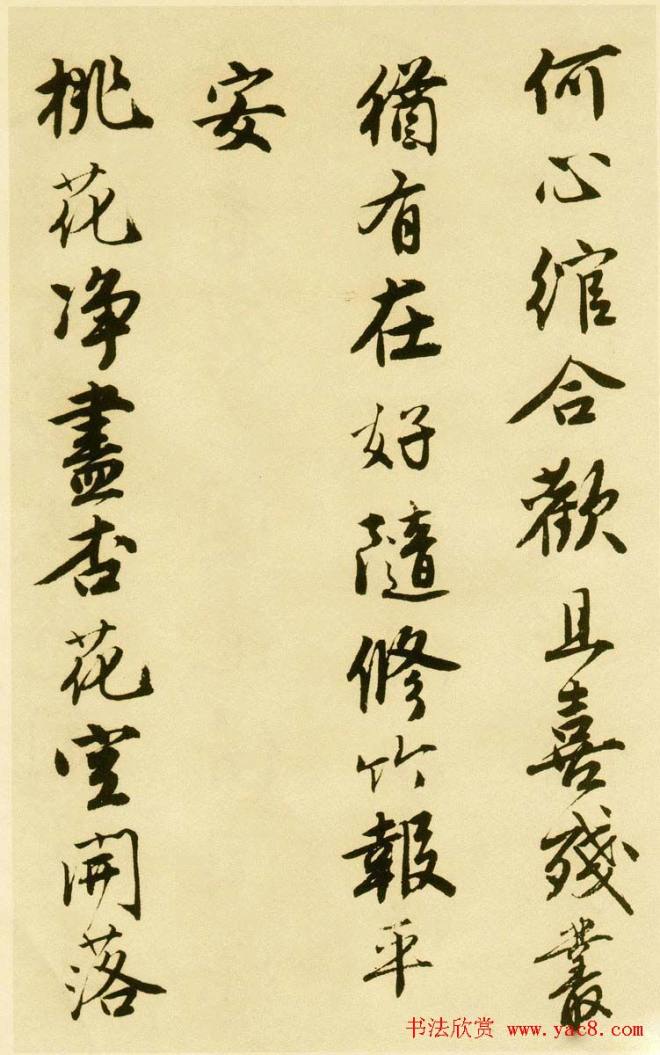 何心綰合歡且喜殘叢
猶有在好隨修竹報平
安
桃花净盡杏花空開落
书法欣赏 www.yac8.com